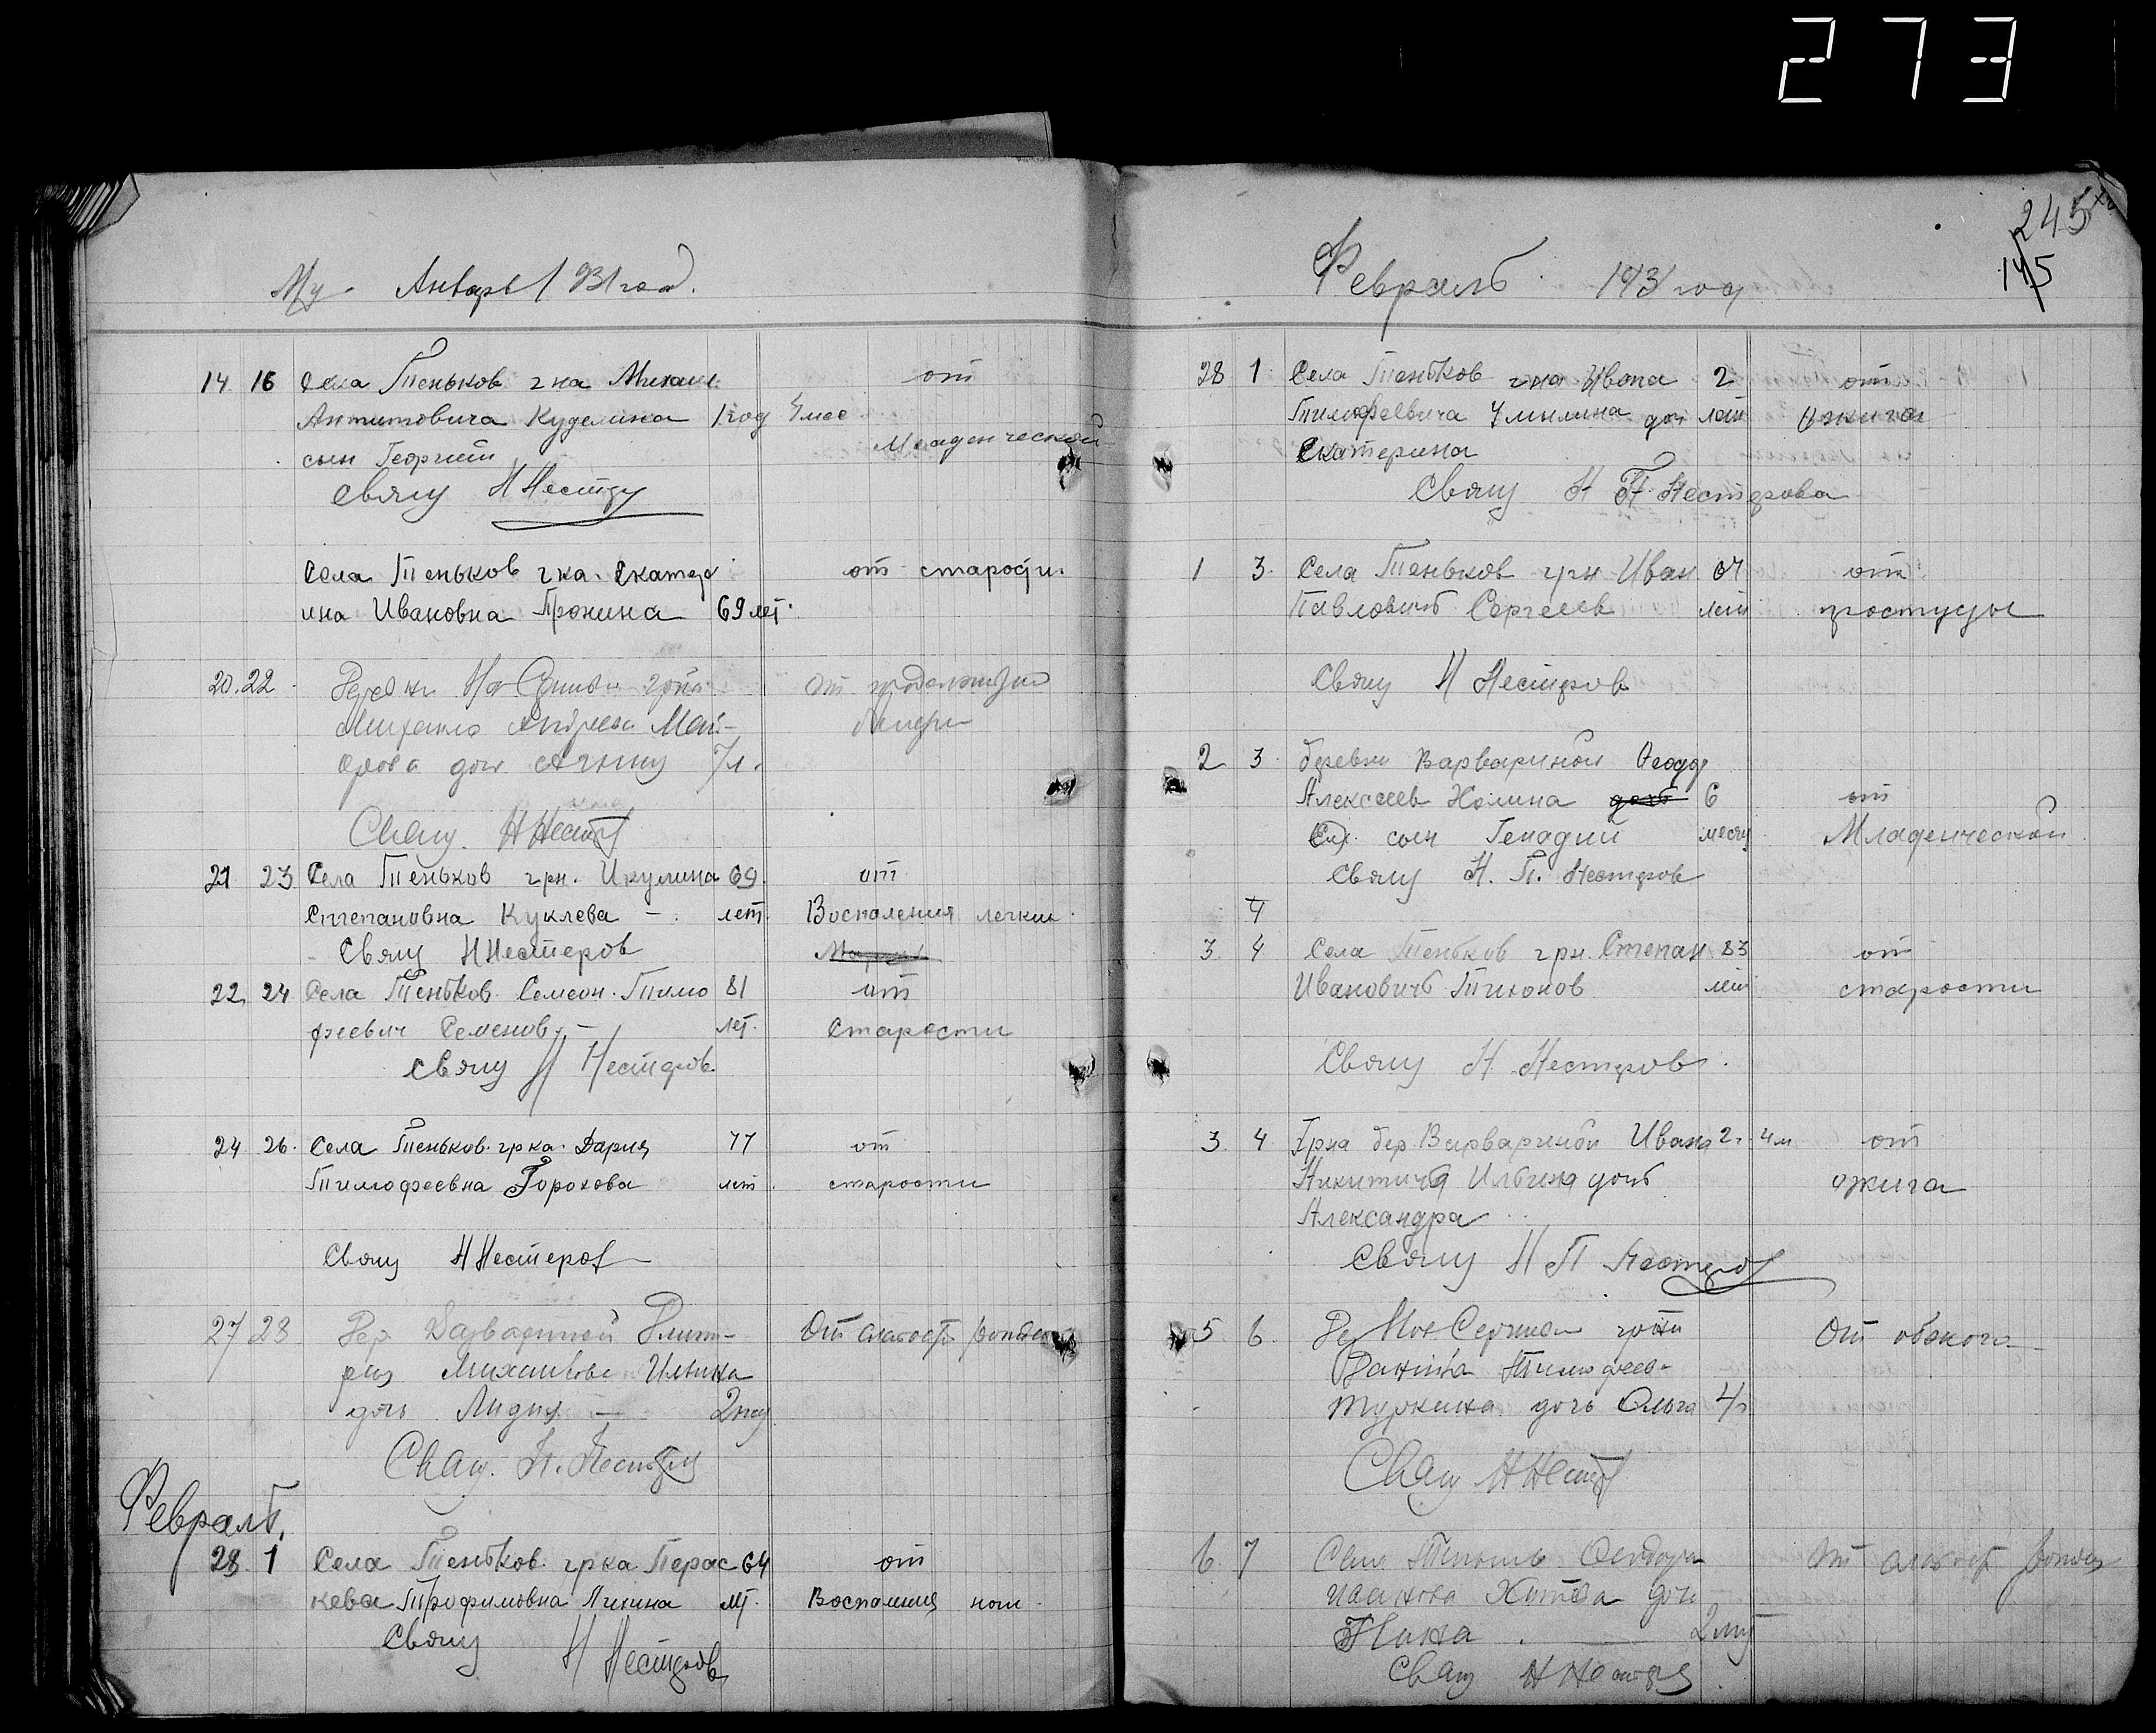 273
Январь 1931 год.
14 16 Села Теньков г на Михаил
Антиповича Куделина 1 год 4 мес
сын Георгий
от
Младенческой
Свящ Н Нестер
Села Теньков г ка. Екатер
ина Ивановна Пронина 69 лет.
от старости.
20. 22. гр на
Андреева Май-
орова дочь 7 л.
от
Свящ. Н Нест
21 23 Села Теньков грн. Акулина 69.
Степановна Куклева — лет.
от
Воспаления легких.
Свящ Н Нестеров
22 24 Села Теньков. Семеон. Тимо 81
феевич Семенов. — лет.
от
Старости
Свящ Н Нестеров.
24 26. Села Теньков. гр ка. Дария 77
Тимофеевна Горохова лет.
от
старости
Свящ Н Нестеров
27 28 Дер Варвариной Дмит-
рия Михайлова Ильина
дочь Лидия — 2 нед
От слабости рожден
Свящ. Н. Нестеров
Февраль.
28 1 Села Теньков. гр ка Парас 64
кева Трофимовна лет.
от
Воспаления
Свящ Н Нестеров
Февраль 1931 год
245
145
28 1 Села Теньков гна Ивана 2
Тимофеевича доч лет
Екатерина
от
Ожига
Свящ Н П. Нестерова
1 3. Села Теньков грн Иван 64
Павловичь Сергеев лет
от
простуды
Свящ Н Нестеров
2 3 деревни Варвариной Феодор
Алексеев дочь 6
сын Генадий месяц
от
Младенческой
Свящ Н. П. Нестеров
4
3. 4 Села Теньков грн. Степан 83
Ивановичь Тихонов лет
от
старости
Свящ Н Нестеров.
3. 4 Грна дер. Варвариной Ивана 2 г. 4 м
Никитича Ильина дочь
Александра
от
ожига
Свящ Н П Нестеров
5 6. Де гр на
Данила Тимофеев-
Туркина дочь Ольга 4 г
От ожога
Свящ Н Нест
6. 7 Села Теньков Феодора
дочь
Нина. — 2 мес
От слабост рожден
Свящ Н Нестер